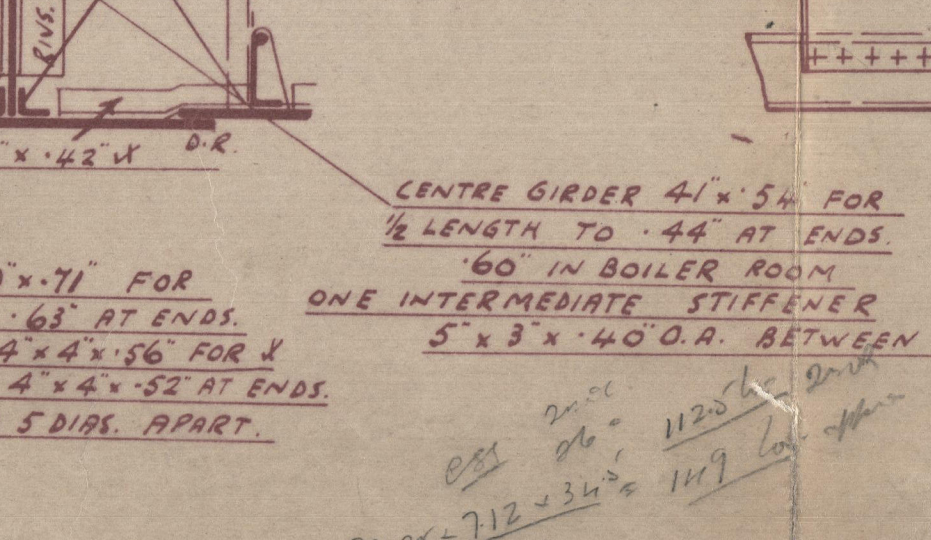 RIVS.
D.R.
" x .42" X
CENTRE GIRDER 41" x .54 FOR
1/2 LENGTH TO .44" AT ENDS.
.60" IN BOILER ROOM
ONE INTERMEDIATE STIFFENER
5" x 3" x .40" O.A. BETWEEN
" x .71" FOR
.63" AT ENDS.
4" x 4" x .56" FOR X
4" x 4" x .52" AT ENDS.
5 DIAS. APART.
112.5
7.12 x 34.5' = 1149